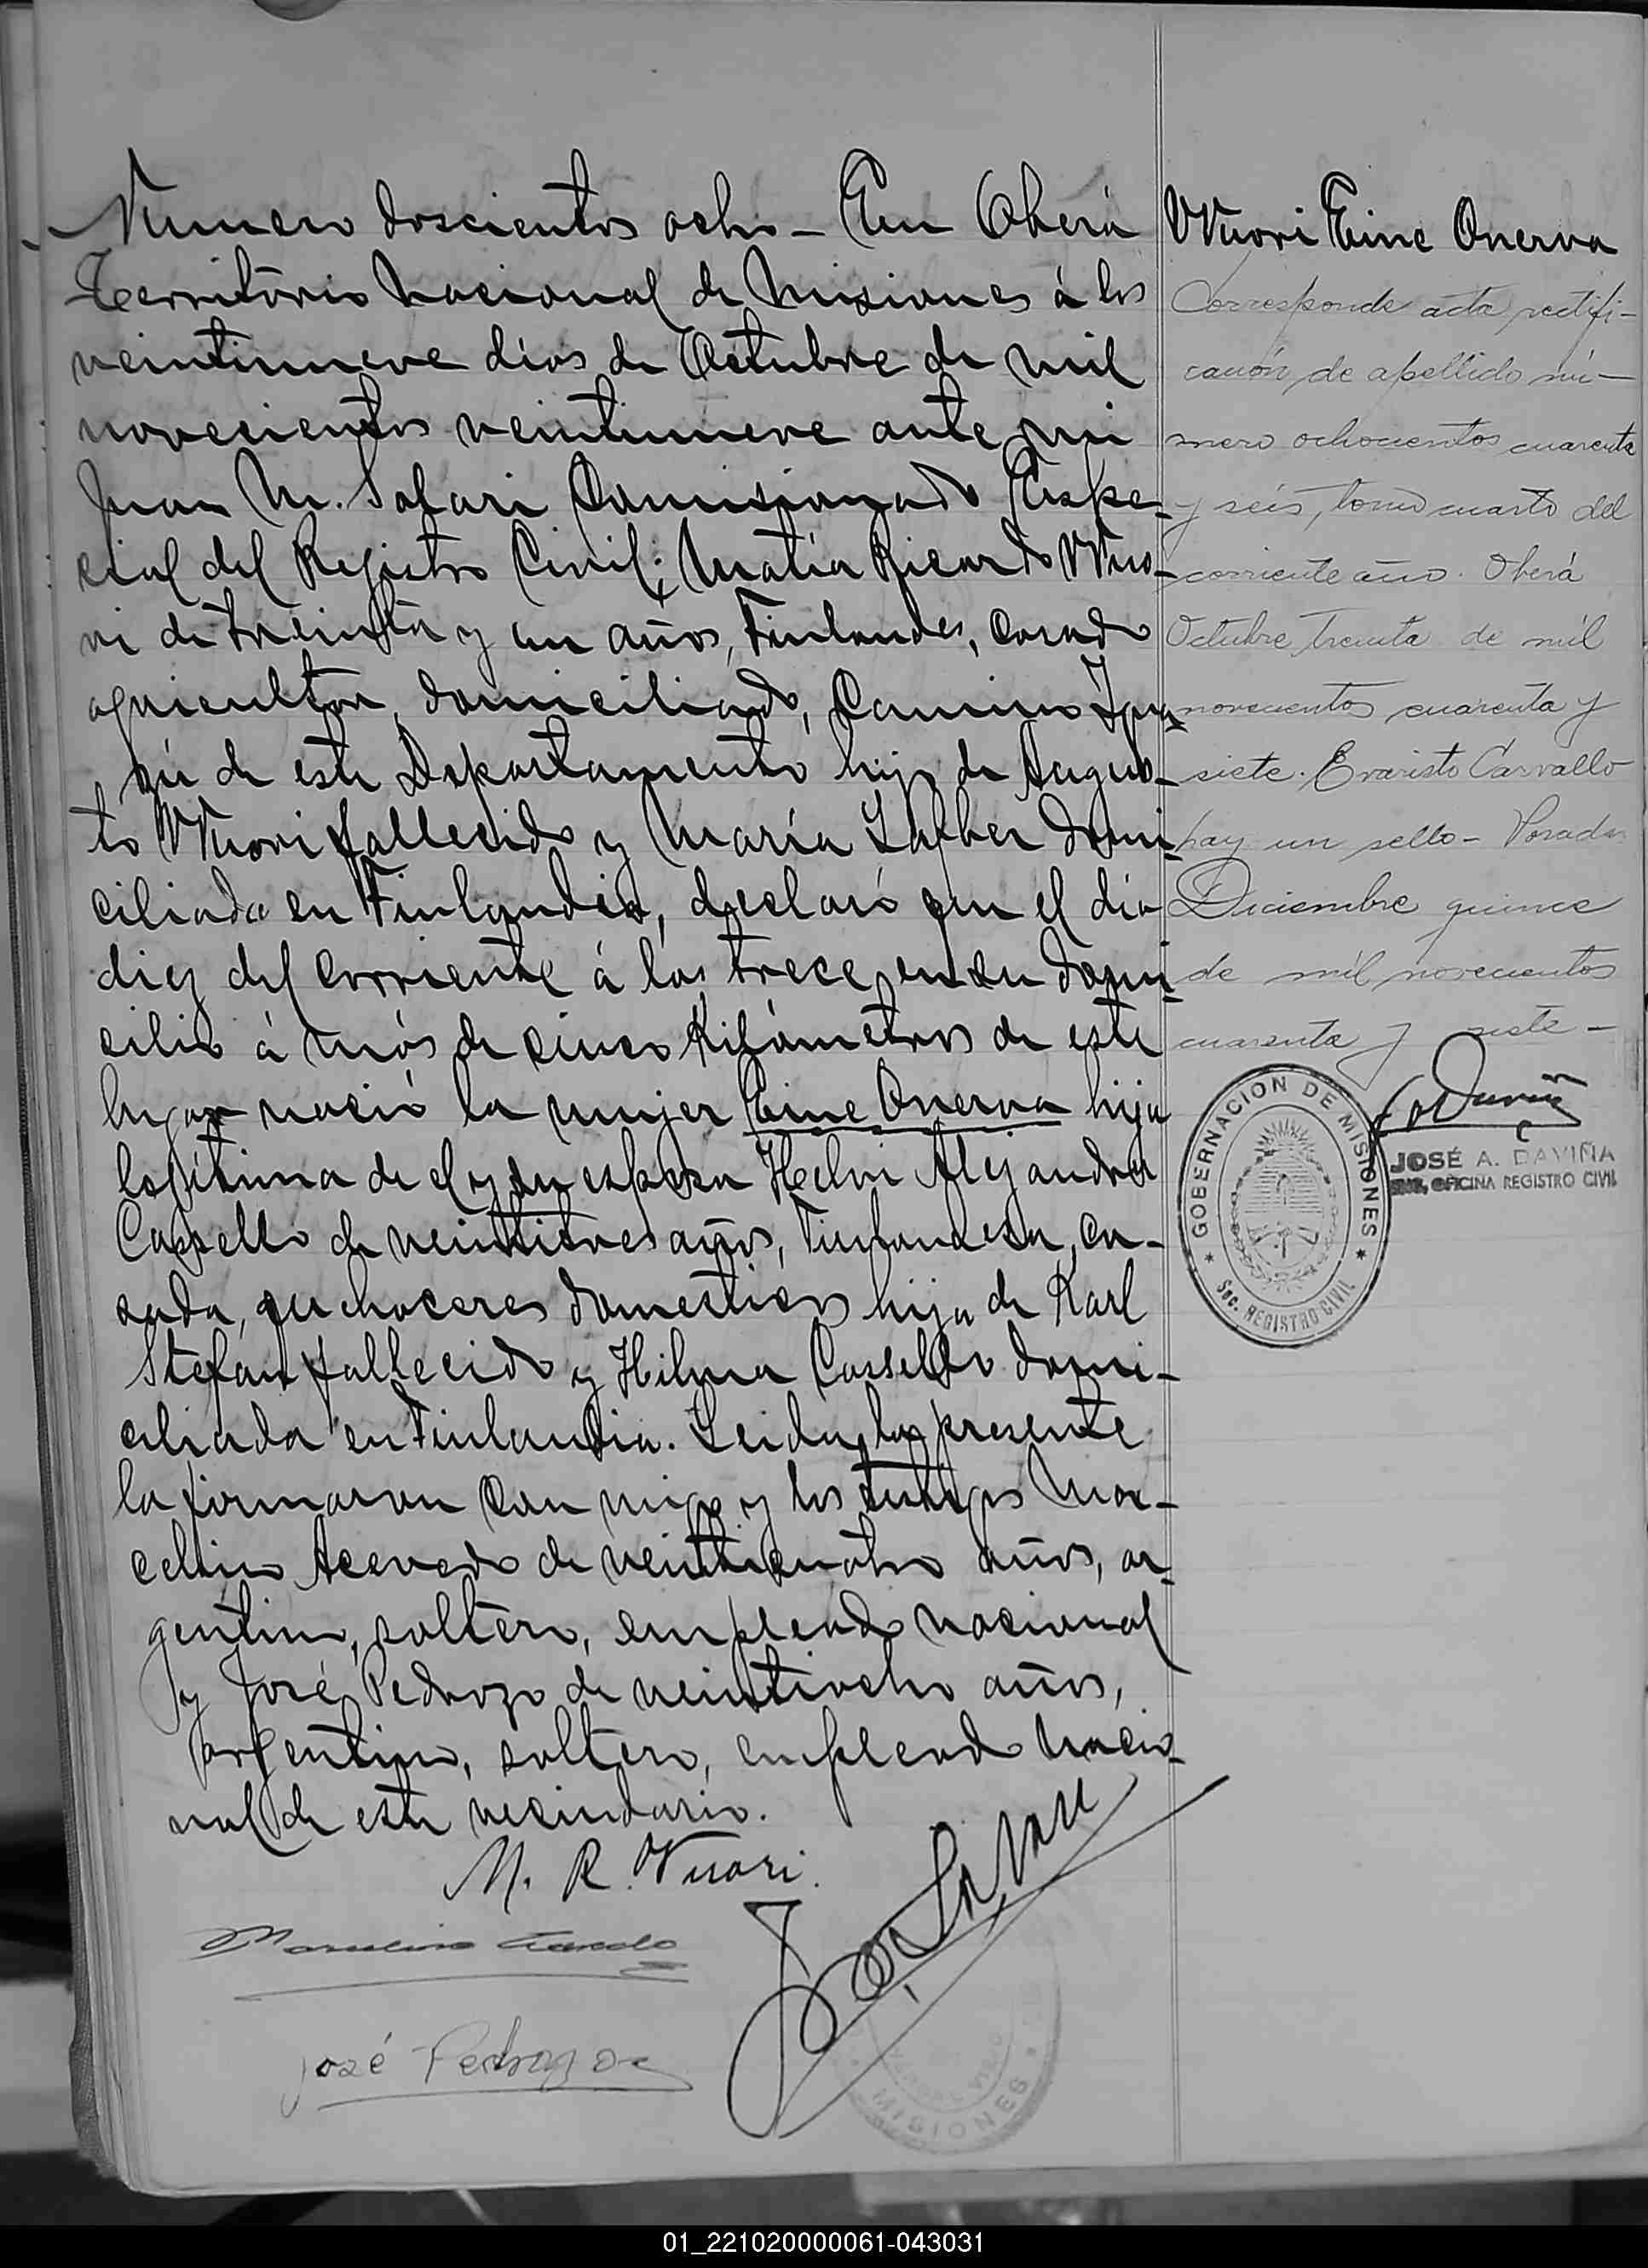 Número doscientos ocho – En Oberá
Territorio Nacional de Misiones á los
veintinueve dias de Octubre de mil
novecientos veintinueve ante mi
Juan M. Solari Comisionado Espe-
cial del Registro Civil; Matia Ricardo Wuo-
ri de treinta y un años, Finlandes, casado
agricultor, domiciliado, Camino
de este Departamento hijo de Augus-
to Wuori fallecido y María domi-
ciliada en Finlandia, declaró que el dia
diez del corriente á las trece en su domi-
cilio á más de cinco Kilómetros de este
lugar nació la mujer Eine Onerva hija
legítima de el y su esposa Helvi Alejandra
Cassello de veintitres años, Finlandesa, ca-
sada, quehaceres domesticos hija de Karl
Stefan fallecido y Hilma Cassello domi-
ciliada en Finlandia. Leida la presente
la firmaron con migo y los testigos Mar-
celino Acevedo de veinticuatro años, ar-
gentino, soltero, empleado nacional
y José Pedrozo de veintiocho años,
argentino, soltero, empleado nacio-
nal de este vecindario.
M. R. Wuori.
Marcelino Acevedo
José Pedrozo
MISIONES
Wuori Eine Onerva
Corresponde acta rectifi-
cación de apellido nú-
mero ochocientos cuarenta
y seis, tomo cuarto del
corriente año. Oberá
Octubre treinta de mil
novecientos cuarenta y
siete. Evaristo Carvallo
hay un sello – Posadas
Diciembre quince
de mil novecientos
cuarenta y siete –
GOBERNACION DE MISIONES
Sec. REGISTRO CIVIL
JOSÉ A. DAVIÑA
OFICINA REGISTRO CIVIL
01_221020000061-043031